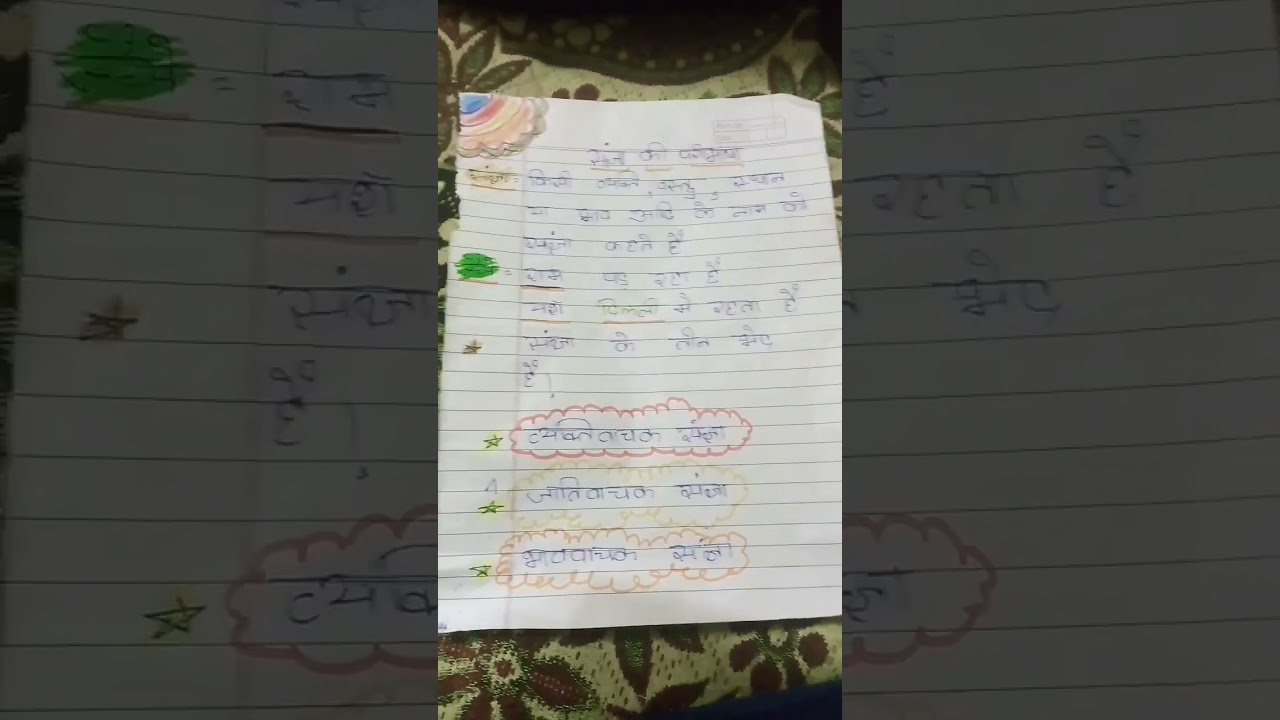 संज्ञा की परिभाषा
संज्ञा = किसी व्यक्ति, वस्तु, स्थान
या भाव आदि के नाम को
संज्ञा कहते हैं
= राम पढ़ रहा हैं
दिल्ली में रहता हैं
संज्ञा के तीन भेद
हैं।
व्यक्तिवाचक संज्ञा
जातिवाचक संज्ञा
भाववाचक संज्ञा